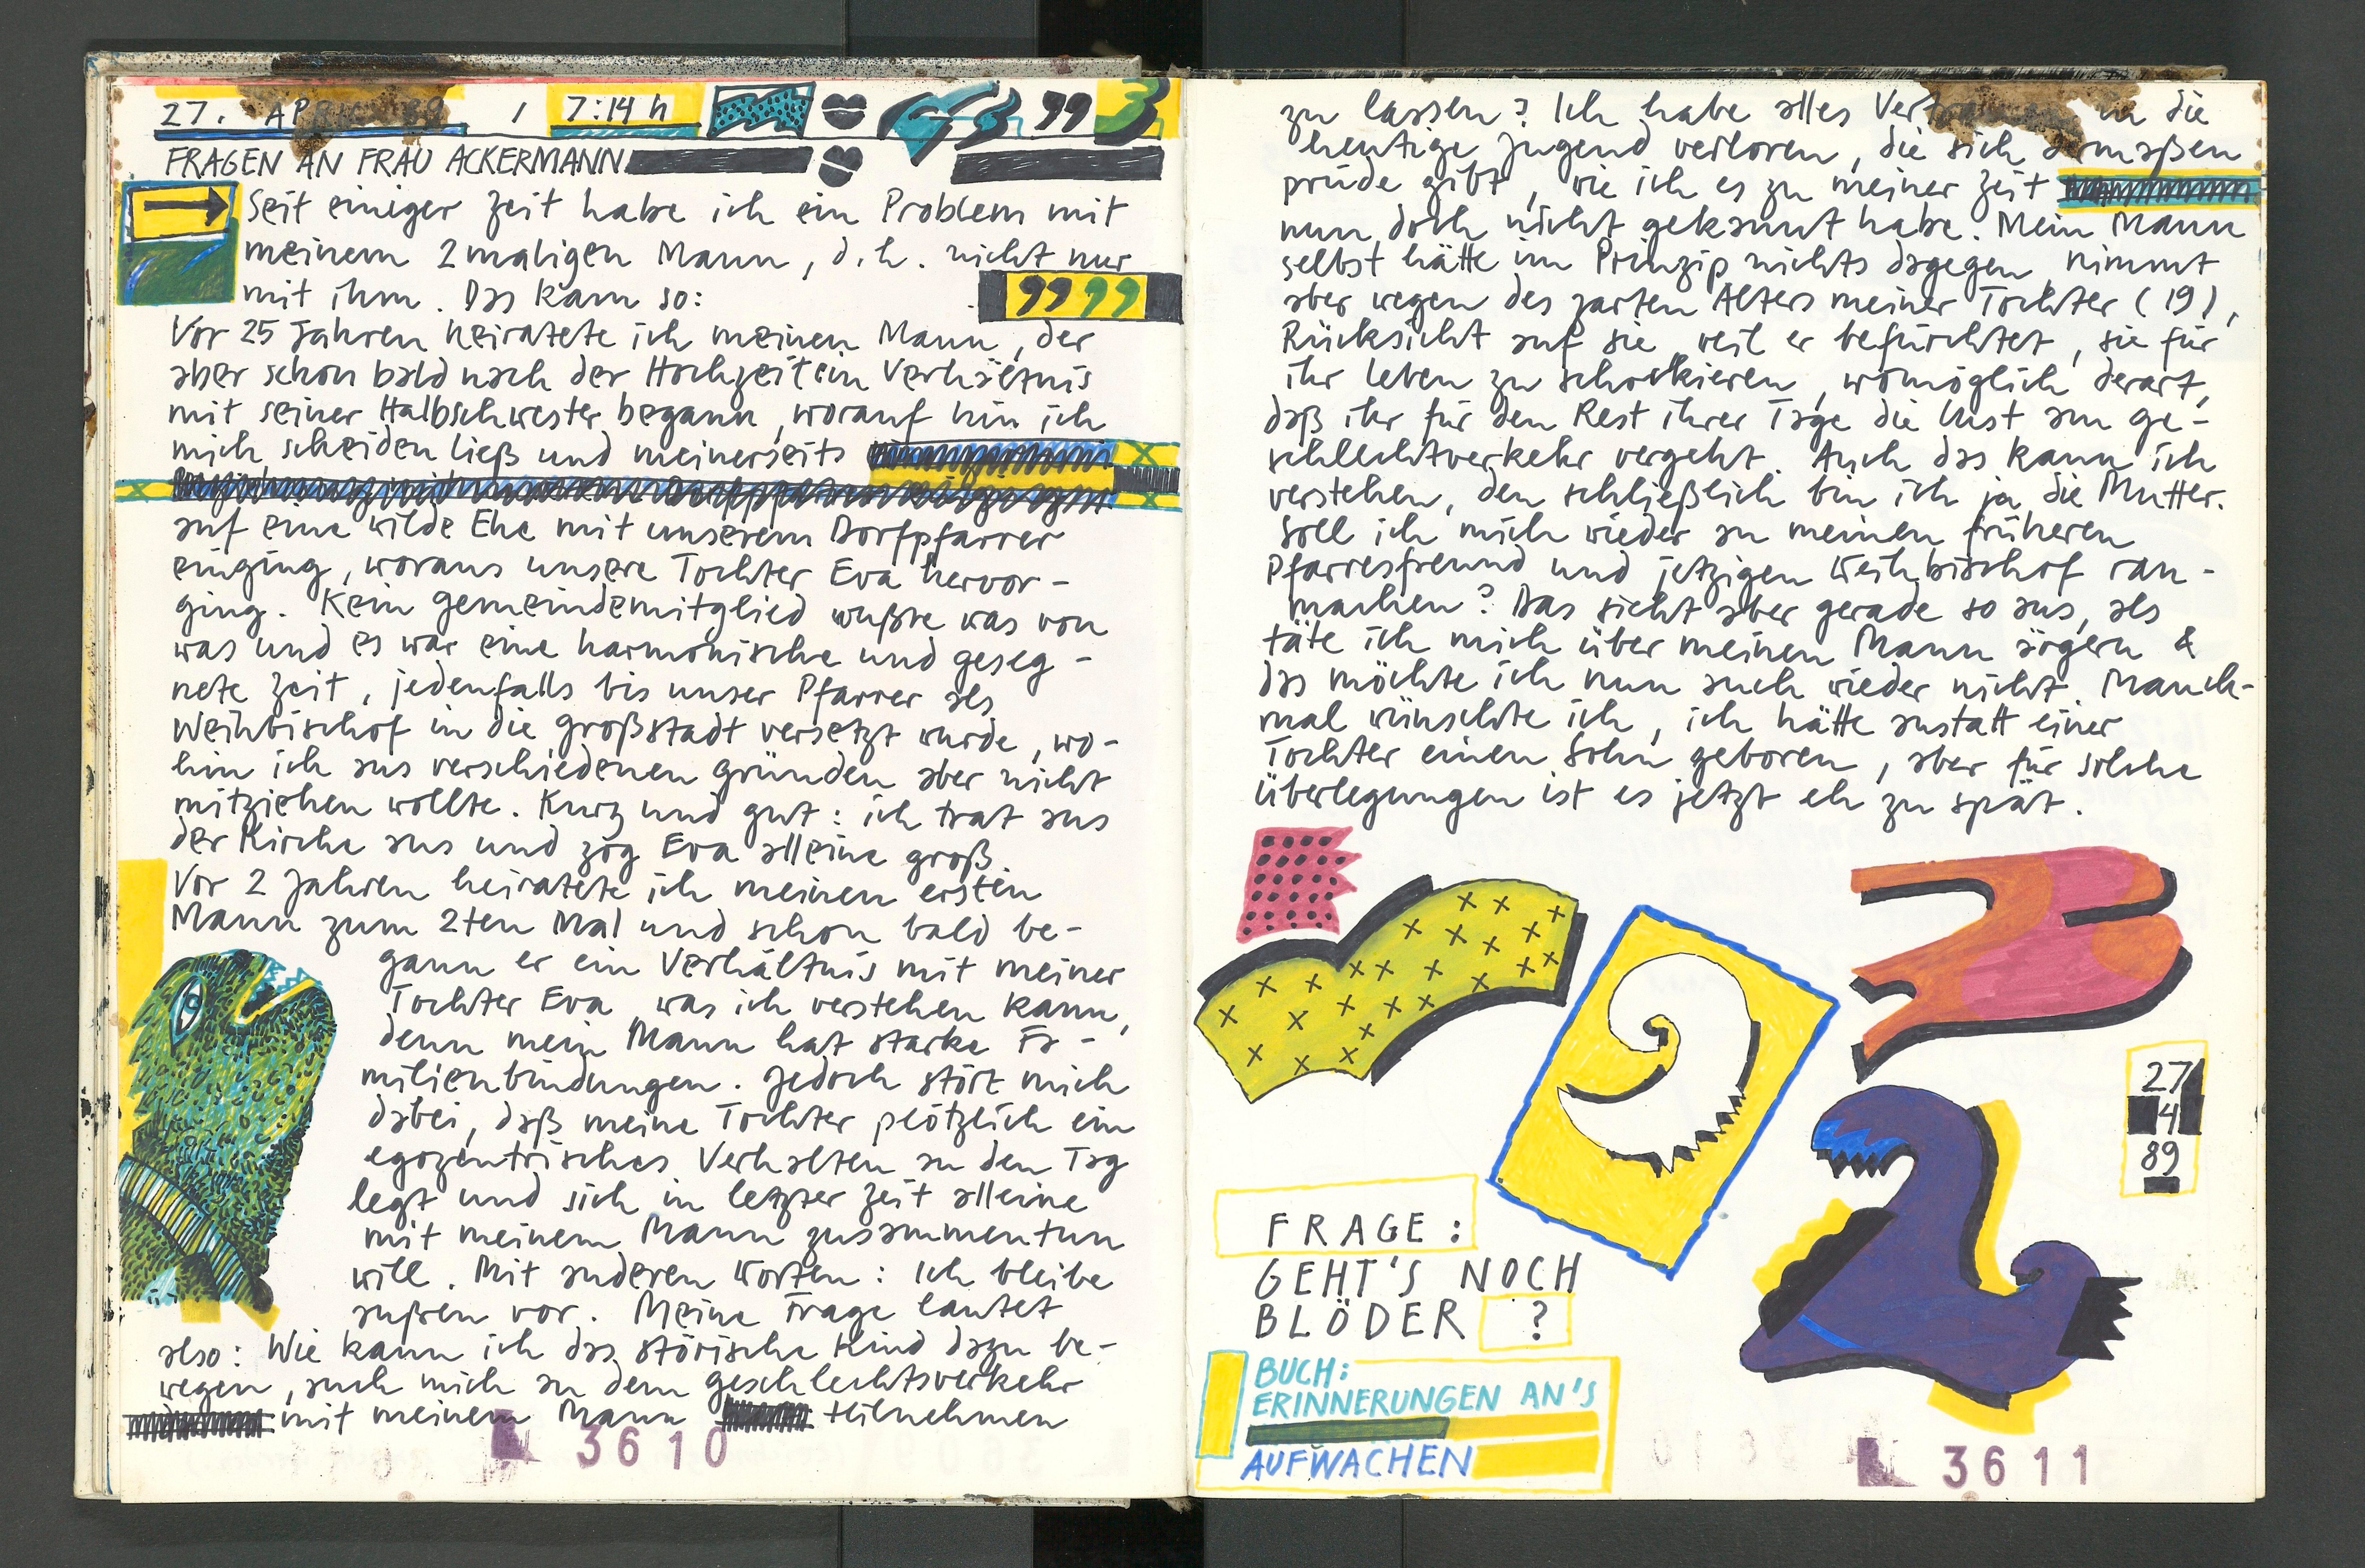 27. APRIL 89 / 7:14 h
FRAGEN AN FRAU ACKERMANN
Seit einiger Zeit habe ich ein Problem mit
meinem 2maligen Mann, d.h. nicht nur
mit ihm. Das kam so:
Vor 25 Jahren heiratete ich meinen Mann, der
aber schon bald nach der Hochzeit ein Verhältnis
mit seiner Halbschwester begann, worauf hin ich
mich scheiden ließ und meinerseits
auf eine wilde Ehe mit unserem Dorfpfarrer
einging, woraus unsere Tochter Eva hervor-
ging. Kein Gemeindemitglied wußte was von
was und es war eine harmonische und geseg-
nete Zeit, jedenfalls bis unser Pfarrer als
Weihbischof in die Großstadt versetzt wurde, wo-
hin ich aus verschiedenen Gründen aber nicht
mitziehen wollte. Kurz und gut: ich trat aus
der Kirche aus und zog Eva alleine groß.
Vor 2 Jahren heiratete ich meinen ersten
Mann zum 2ten Mal und schon bald be-
gann er ein Verhältnis mit meiner
Tochter Eva, was ich verstehen kann,
denn mein Mann hat starke Fa-
milienbindungen. Jedoch stört mich
dabei, daß meine Tochter plötzlich ein
egozentrisches Verhalten an den Tag
legt und sich in letzter Zeit alleine
mit meinem Mann zusammentun
will. Mit anderen Worten: Ich bleibe
außen vor. Meine Frage lautet
also: Wie kann ich das störische Kind dazu be-
wegen, auch mich an dem Geschlechtsverkehr
mit meinem Mann teilnehmen
3610
zu lassen? Ich habe alles in die
heutige Jugend verloren, die sich dermaßen
prüde gibt, wie ich es zu meiner Zeit
nun doch nicht gekannt habe. Mein Mann
selbst hätte im Prinzip nichts dagegen, nimmt
aber wegen des zarten Alters meiner Tochter (19),
Rücksicht auf sie, weil er befürchtet, sie für
ihr Leben zu schockieren, womöglich derart,
daß ihr für den Rest ihrer Tage die Lust am Ge-
schlechtverkehr vergeht. Auch das kann ich
verstehen, den schließlich bin ich ja die Mutter.
Soll ich mich wieder an meinen früheren
Pfarresfreund und jetzigen Weihbischof ran-
machen? Das sieht aber gerade so aus, als
täte ich mich über meinen Mann ärgern &
das möchte ich nun auch wieder nicht. Manch-
mal wünschte ich, ich hätte anstatt einer
Tochter einen Sohn geboren, aber für solche
Überlegungen ist es jetzt eh zu spät.
27
4
89
FRAGE:
GEHT'S NOCH
BLÖDER ?
BUCH:
ERINNERUNGEN AN'S
AUFWACHEN
3611